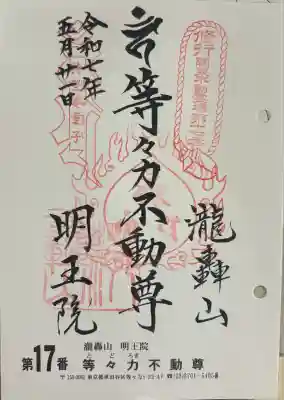 瀧轟山
等々力不動尊
明王院
令和七年
五月廿一日
瀧轟山 明王院
とどろき
第17番 等々力不動尊